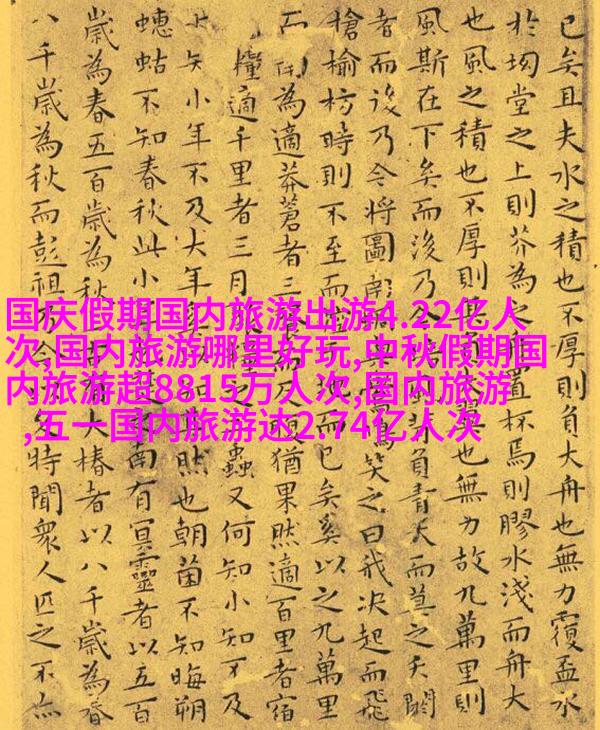 国庆假期国内旅游出游4.22亿人
次,国内旅游哪里好玩,中秋假期国
内旅游超8815万人次,国内旅游
,五一国内旅游达2.74亿人次
已矣且夫水之積也不厚則負大舟也無力覆盃水
於坳堂之上則芥為之舟置杯焉則膠水淺而舟大
也風之積也不厚則其負大翼也無力故九萬里則
風斯在下矣而後乃今風背負青天而莫之夭閼
者而後乃今將圖南鷽笑之曰我決起而飛
槍榆枋時則不至而控地而已矣奚以之九萬里
而為適莽蒼者三而反腹猶果然適百里者宿
糧適千里者三月之二蟲又何知小知不及
大知小年不及大年奚以知然也朝菌不知晦朔
蟪蛄不知春秋此小年南有冥靈者以五百
歲為春五百歲為秋大椿者以八千歲為春
八千歲為秋而彭祖乃今久特聞衆人匹之不亦